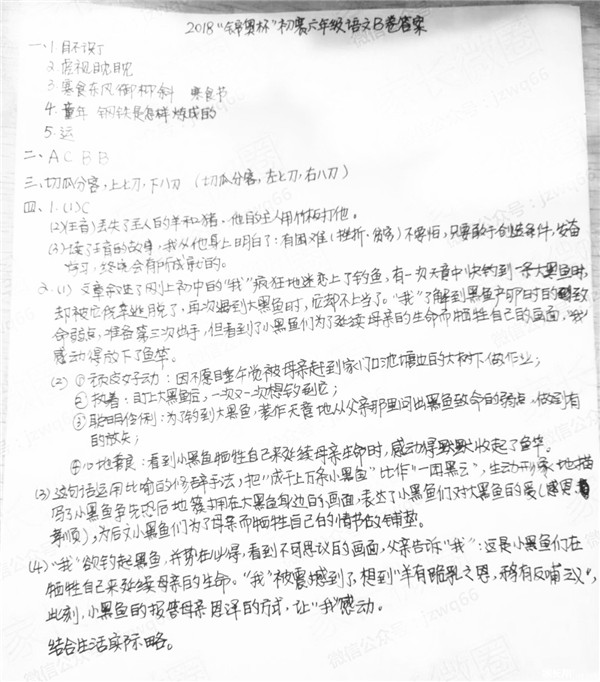 2018“锦奥杯”初赛六年级语文B卷答案
一、1. 目不识丁
2. 虎视眈眈
3. 寒食东风御柳斜 寒食节
4. 童年 钢铁是怎样炼成的
5. 运
二、A C B B
三、切瓜分客，上七刀，下八刀 （切瓜分客，左七刀，右八刀）
四、1. (1) C
(2) 王音丢失了主人的羊和猪，他的主人用竹板打他。
(3) 读了王音的故事，我从他身上明白了：有困难（挫折、贫穷）不要怕，只要敢于创造条件，发奋
学习，终究会有所成就的。
2. (1) 文章叙述了刚上初中的“我”疯狂地迷恋上了钓鱼，有一次无意中快钓到一条大黑鱼时，
却被它侥幸逃脱了，再次遇到大黑鱼时，它却不上当了。“我”了解到黑鱼产卵时的致
命弱点，准备第三次出手，但看到了小黑鱼们为了延续母亲的生命而牺牲自己的画面，“我”
感动得放下了鱼竿。
(2) ①顽皮好动：因不愿睡午觉被母亲赶到家门口池塘边的大树下做作业；
②执着：盯上大黑鱼后，一次又一次想钓到它；
③聪明伶俐：为钓到大黑鱼，装作无意地从父亲那里问出黑鱼致命的弱点，做到有
的放矢；
④心地善良：看到小黑鱼牺牲自己来延续母亲生命时，感动得默默收起了鱼竿。
(3) 这句话运用比喻的修辞手法，把“成千上万条小黑鱼”比作“一团黑云”，生动形象地描
写了小黑鱼争先恐后地簇拥在大黑鱼身边的画面，表达了小黑鱼们对大黑鱼的爱（感恩、
孝顺），为后文小黑鱼们为了母亲而牺牲自己的情节做铺垫。
(4) “我”欲钓起黑鱼，并势在必得，看到不可思议的画面，父亲告诉“我”：这是小黑鱼们在
牺牲自己来延续母亲的生命。“我”被震撼到了，想到“羊有跪乳之恩，鸦有反哺之义”，
此刻，小黑鱼的报答母亲恩泽的方式，让“我”感动。
结合生活实际略。